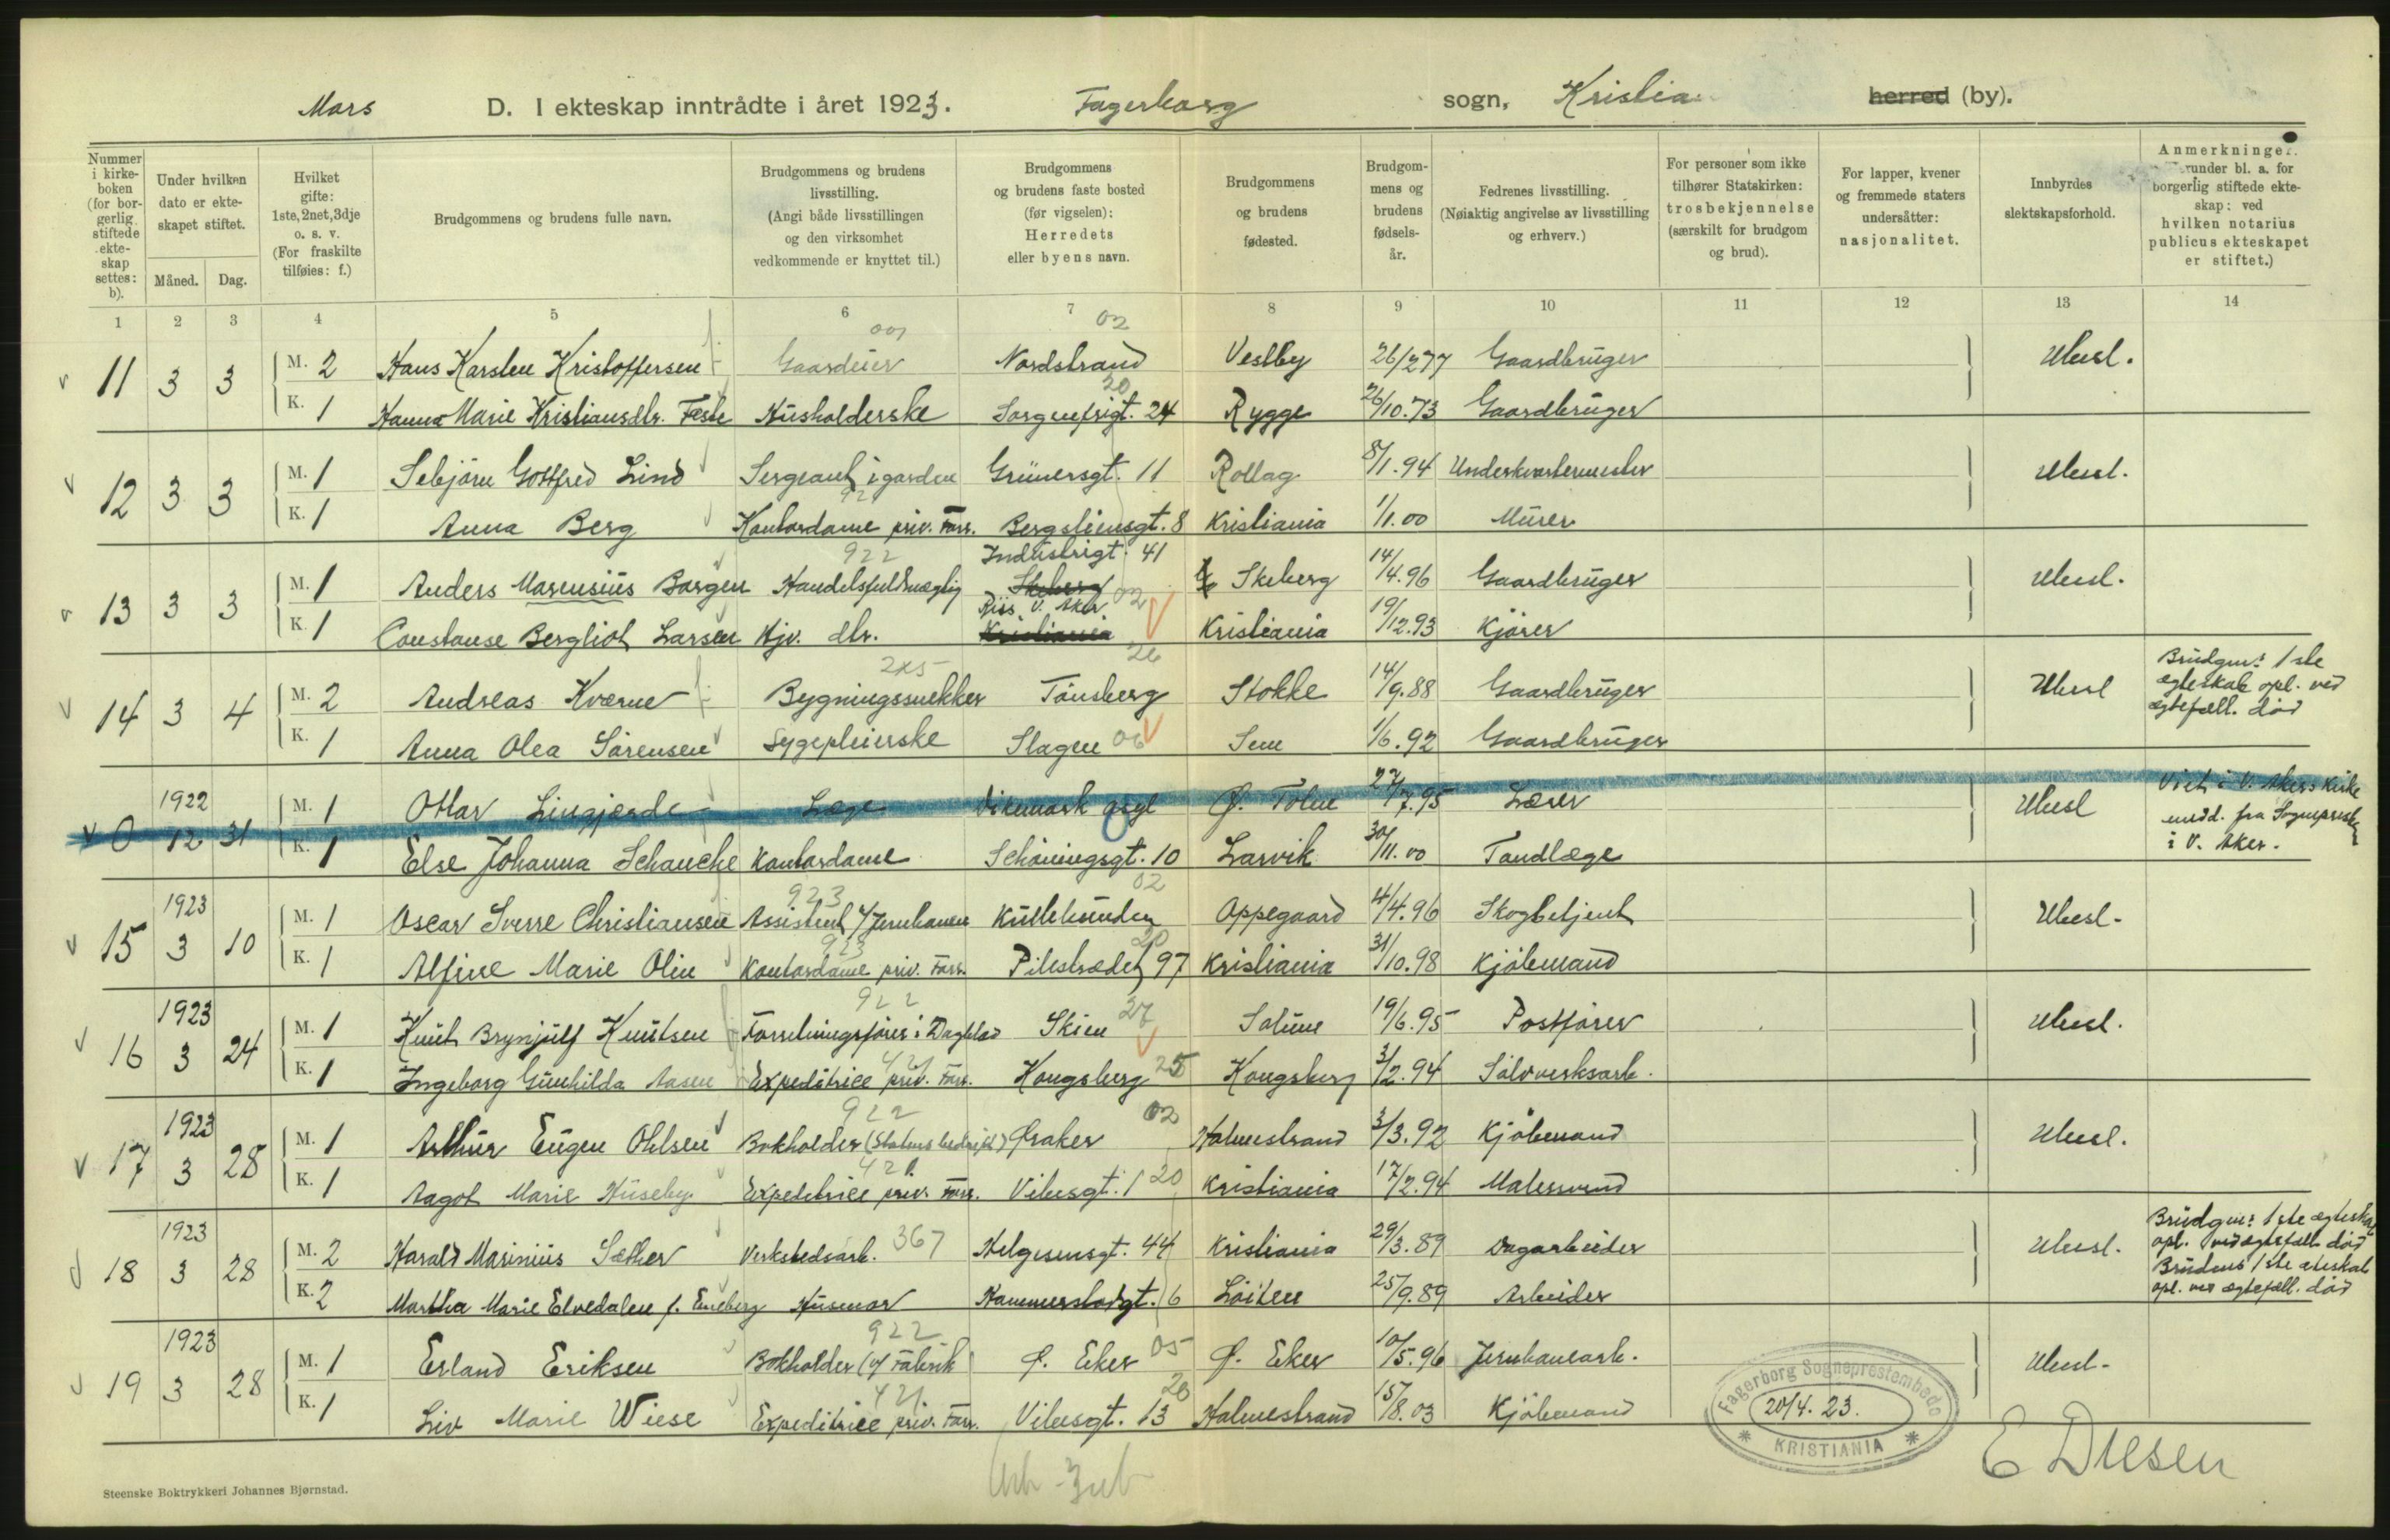 Mars D. I ekteskap inntrådte i året 1923. Fagerborg sogn, Kristia herred (by).
Nummer i kirke-boken (for bor-gerlig stiftede ekte-skap settes: b).
Under hvilken dato er ekte-skapet stiftet.
Måned. Dag.
Hvilket gifte: 1ste, 2net, 3dje o. s. v. (For fraskilte tilføies: f.)
Brudgommens og brudens fulle navn.
Brudgommens og brudens livsstilling. (Angi både livsstillingen og den virksomhet vedkommende er knyttet til.)
Brudgommens og brudens faste bosted (før vigselen): Herredets eller byens navn.
Brudgommens og brudens fødested.
Brudgom-mens og brudens fødsels-år.
Fedrenes livsstilling. (Nøiaktig angivelse av livsstilling og erhverv.)
For personer som ikke tilhører Statskirken: trosbekjennelse (særskilt for brudgom og brud).
For lapper, kvener og fremmede staters undersåtter: nasjonalitet.
Innbyrdes slektskapsforhold.
Anmerkninger. (Herunder bl. a. for borgerlig stiftede ekte-skap: ved hvilken notarius publicus ekteskapet er stiftet.)
1 2 3 4 5 6 7 8 9 10 11 12 13 14
02
11 3 3 M. 2 Hans Karsten Kristoffersen Gaardeier Nordstrand Vestby 26/2 77 Gaardbruger Ubesl.
20
K. 1 Hanna Marie Kristiansdtr. Feste Husholderske Sorgenfrigt. 24 Rygge 26/10.73 Gaardbruger
12 3 3 M. 1 Sebjörn Gottfred Lind Sergeant i garden Grünersgt. 11 Rollag 8/1.94 Underkvartermester Ubesl.
K. 1 Anna Berg Kontordame priv. Forr. Bergsliensgt. 8 Kristiania 1/1.00 Murer
922 Industrigt. 41
13 3 3 M. 1 Anders Marensius Borgen Handelsfuldmægtig Skeberg Skeberg 14/4.96 Gaardbruger Ubesl.
Riis V. Aker 02
K. 1 Constanse Bergliot Larsen Hjv. dtr. Kristiania Kristiania 19/12.93 Kjører
26
14 3 4 M. 2 Andreas Kværne Bygningssnekker Tönsberg Stokke 14/9.88 Gaardbruger Ubesl Brudgm.s 1ste
ægteskab opl. ved
ægtefæll. död
K. 1 Anna Olea Sörensen Sygepleierske Slagen 06 Sem 1/6.92 Gaardbruger
1922
0 12 31 M. 1 Ottar Lingjærde Læge Dikemark asyl Ø. Tolne 27/7.95 Lærer Ubesl Viet i V. Akers Kirke
medd. fra Sogneprest
i V. Aker.
K. 1 Else Johanna Schancke Kontordame Schöningsgt. 10 Larvik 30/11.00 Tandlæge
923 02
1923
15 3 10 M. 1 Oscar Sverre Christiansen Assistent v/Jernbanen Kullebunden Oppegaard 4/4.96 Skogbetjent Ubesl.
923 20
K. 1 Alfine Marie Olin Kontordame priv. Forr. Pilestrædet 97 Kristiania 31/10.98 Kjöbmand
922 27
1923
16 3 24 M. 1 Knut Brynjulf Knutsen Forretningsförer i Dagblad Skien Solum 19/6.95 Postförer Ubesl.
421
K. 1 Ingeborg Gunhilda Aasen Expeditrice priv. Forr. Kongsberg 25 Kongsberg 3/2.94 Sölvverksarb.
922 02
1923
17 3 28 M. 1 Arthur Eugen Ohlsen Bokholder (Statens bedrift) Øraker Holmestrand 3/3.92 Kjöbmand Ubesl.
421
K. 1 Aagot Marie Huseby Expeditrice priv. Forr. Vibesgt. 1 20 Kristiania 17/2.94 Malersvend
1923
18 3 28 M. 2 Harald Marinius Sæther Verkstedsarb. 367 Helgesensgt. 44 Kristiania 29/3.89 Dagarbeider Ubesl. Brudgm.s 1ste ægteskab
opl. ved ægtefæll. död
Brudens 1ste æteskab
opl. ved ægtefæll. död
K. 2 Martha Marie Elvedalen f. Eneberg Husmor 6 Löiten 25/9.89 Arbeider
922 05
1923
19 3 28 M. 1 Erland Eriksen Bokholder (v/ Fabrik) Ø. Eker Ø. Eker 10/5.96 Jernbanearb. Ubesl.
421 20
K. 1 Liv Marie Wiese Expeditrice priv. Forr. Vibesgt. 13 Holmestrand 15/8.03 Kjöbmand
Fagerborg Sogneprestembede
20/4.23.
KRISTIANIA
E Diesen
Steenske Boktrykkeri Johannes Bjørnstad.